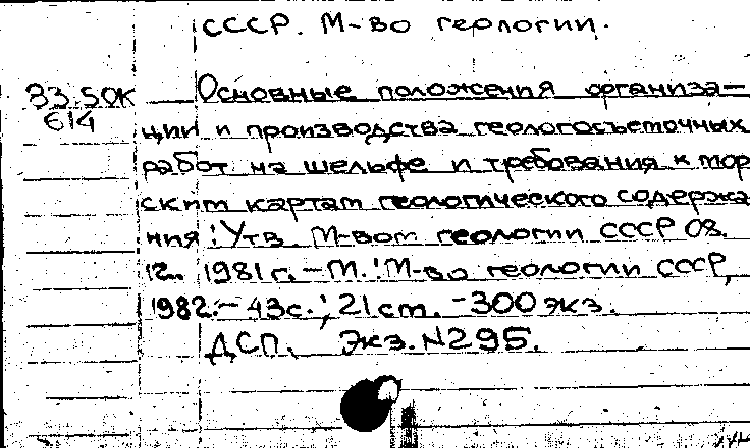 СССР. М-во геологии.
33.5OK Основные положения организа-
614 ции и производства геологосъемочных
работ на шельфе и требования к мор
ским картам геологического содержа
ния: Утв. М-вом геологии СССР 08.
12. 1981 г. - М.: М-во геологии СССР,
1982. - 43с.; 21 см. - 300 экз.
ДСП. Экз. N295.